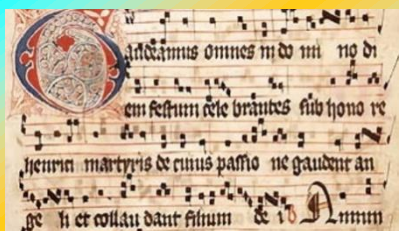 Gaudeamus omnes in do mi no di
em festum cele brantes sub hono re
henrici martyris de cuius passio ne gaudent an
ge li et collau dant filium de i Annum